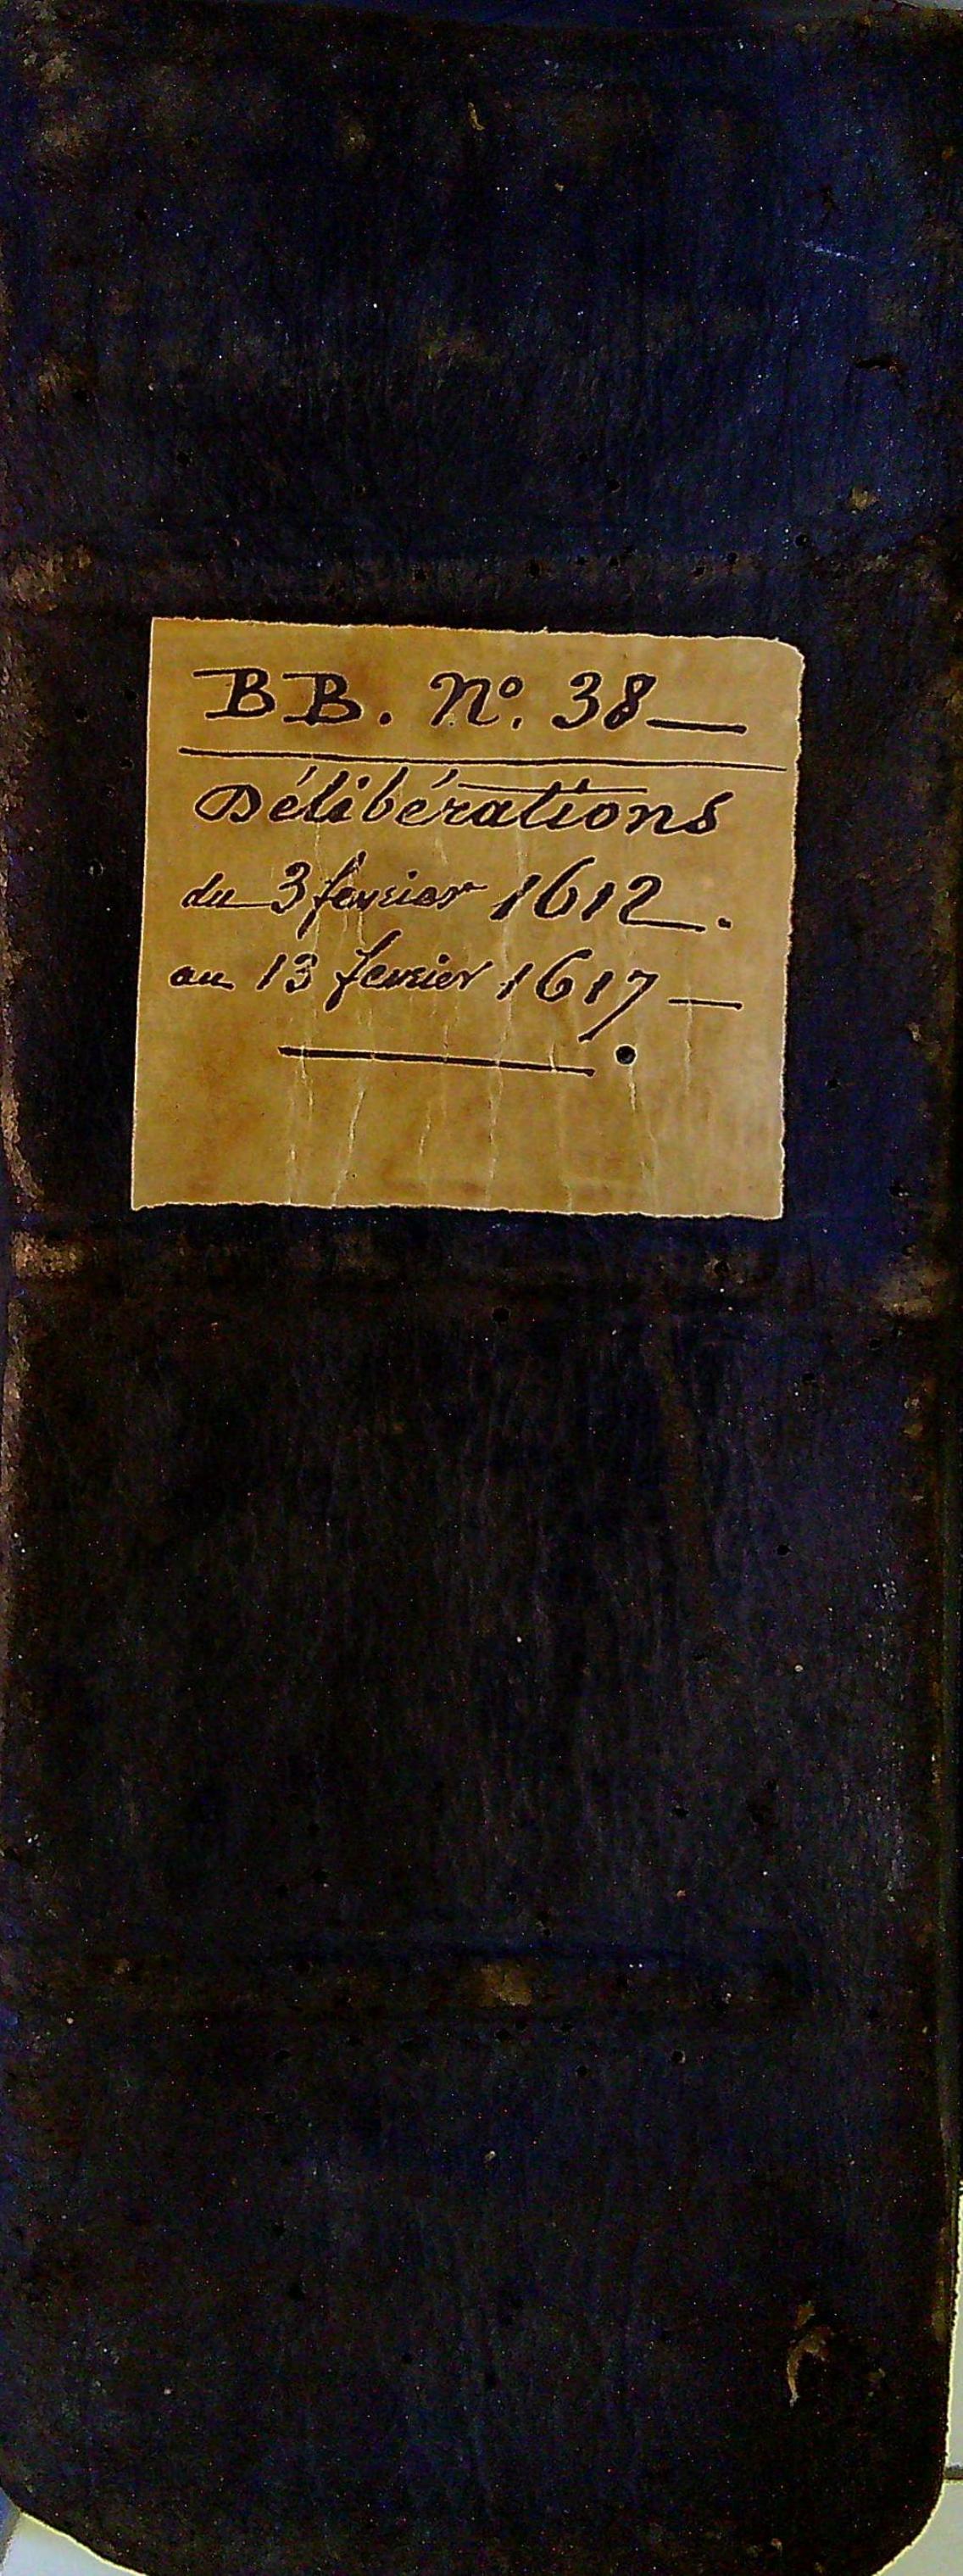 BB. No. 38
Délibérations
du 3 fevrier 1612.
au 13 fevrier 1617